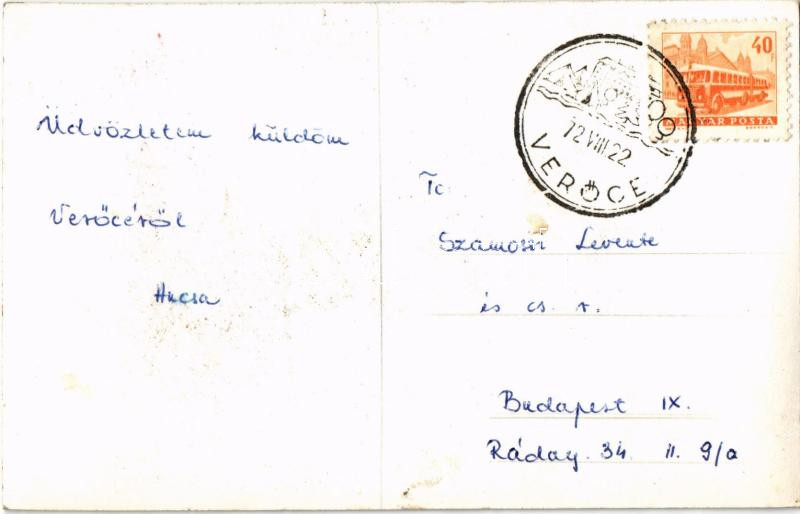 Üdvözletem küldöm
Verőcéről
Ancsa
40
MAGYAR POSTA
72 VIII. 22
VERŐCE
To:
Szamosi Levente
és cs. r.
Budapest IX.
Ráday 34. II. 9/a